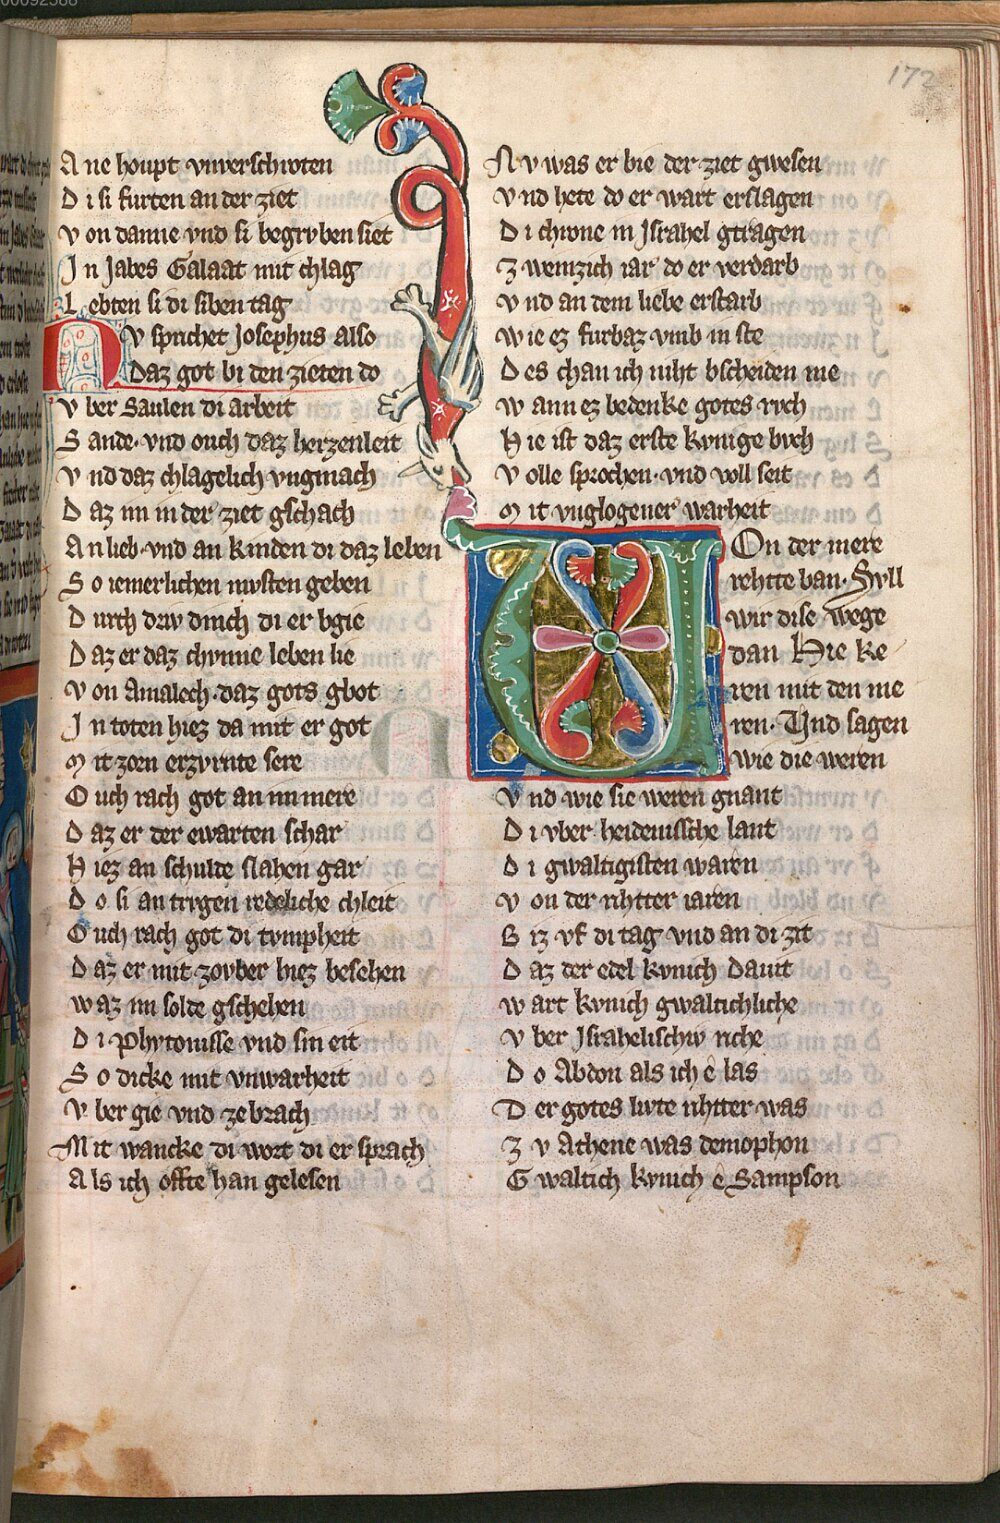 172
A ne houpt vnverschroten
D i si furten an der ziet
V on danne vnd si begrvben siet
J n Jabes Galaat mit chlag
L ebten si di siben tag
N v sprichet Josephus also
Daz got bi den zieten do
V ber Saulen di arbeit
S ande · vnd ouch daz herzenleit
V nd daz chlagelich vngmach
D az im in der ziet gschach
A n lieb · vnd an kinden di daz leben
S o iemerlichen mvsten geben
D urch drv dinch di er bgie
D az er daz chvnne leben lie
V on Amalech · daz gots gbot
J n toten hiez da mit er got
M it zorn erzvrnte sere
O uch rach got an im mere
D az er der ewarten schar
H iez an schulde slahen gar
D o si an trvgen redeliche chleit
O uch rach got di tvmpheit
D az er mit zovber hiez besehen
W az im solde gschehen
D i · Phytonisse vnd sin eit
S o dicke mit vnwarheit
V ber gie vnd zebrach
M it wancke di wort di er sprach
A ls ich offte han gelesen
N v was er bie der ziet gwesen
V nd hete do er wart erslagen
D i chrone in Jsrahel gtragen
Z weinzich iar do er verdarb
V nd an dem liebe erstarb
W ie ez furbaz vmb in ste
D es chan ich niht bscheiden me
W ann ez bedenke gotes rvch
H ie ist daz erste kvnige bvch
V olle sprochen · vnd voll seit
M it vnglogener warheit
VOn der mere
rehtte ban · Syll
wir dise wege
dan Hie ke
ren mit den me
ren · Vnd sagen
wie die weren
V nd wie sie weren gnant
D i vber heidenissche lant
D i gwaltigisten waren
V on der rihtter iaren
B iz vf di tag vnd an di zit
D az der edel kvnich Dauit
W art kvnich gwaltichliche
V ber Jsrahelischiv riche
D o Abdon als ich e las
D er gotes livte rihtter was
Z v Athene was demophon
G waltich kvnich e Sampson